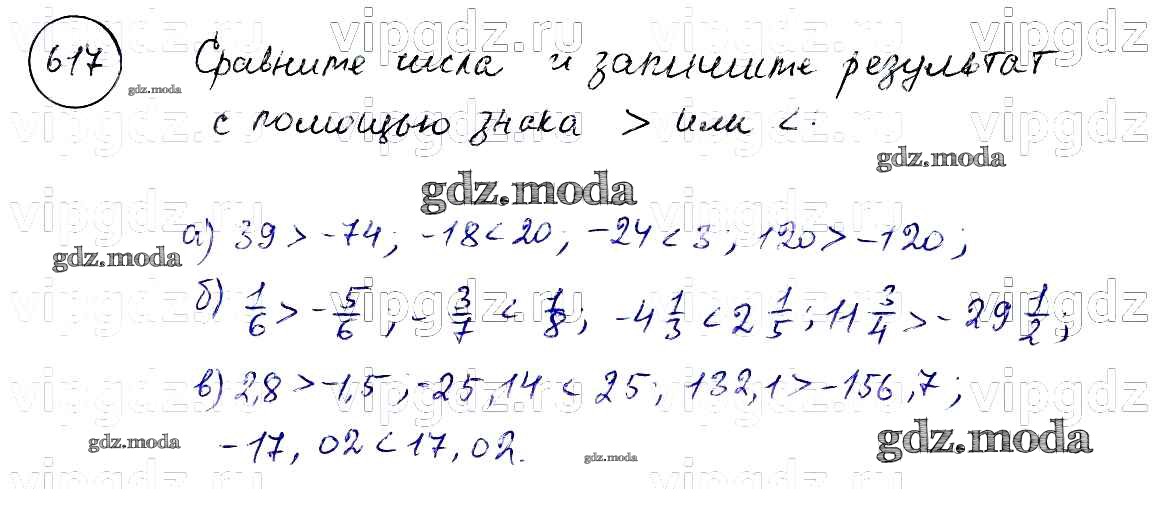 617 Сравните числа и запишите результат
с помощью знака > или <.
а) 39 > -74; -18 < 20; -24 < 3; 120 > -120;
б) 1/6 > -5/6; -3/7 < 1/8; -4 1/3 < 2 1/5; 11 3/4 > -29 1/2;
в) 2,8 > -1,5; -25,14 < 25; 132,1 > -156,7;
-17,02 < 17,02.
vipgdz.ru
gdz.moda